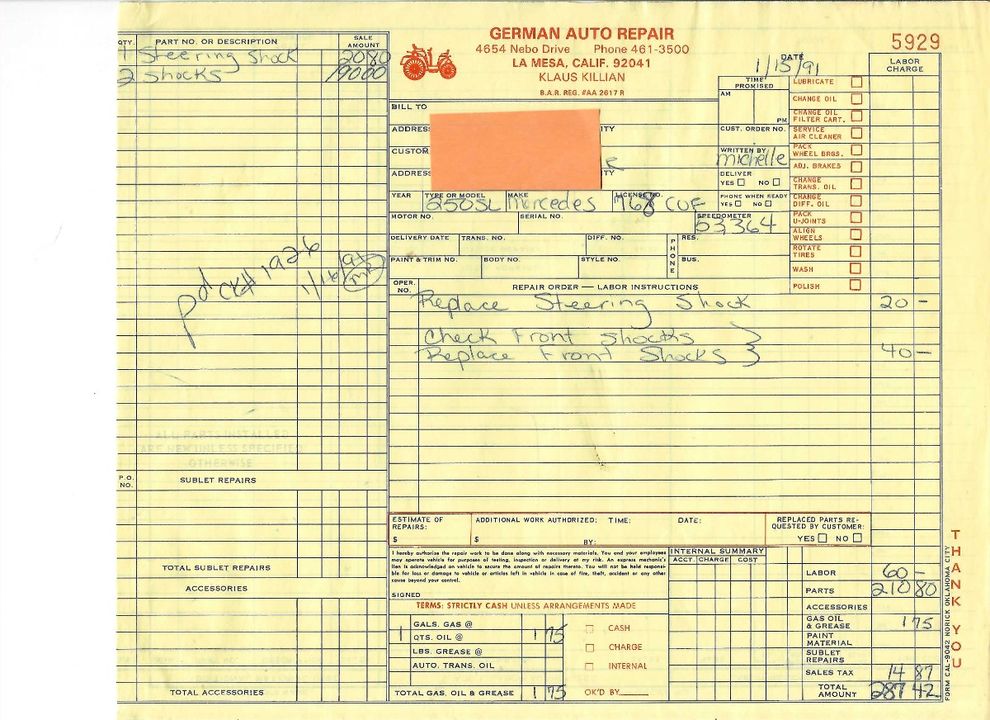 QTY. PART NO. OR DESCRIPTION SALE AMOUNT
1 Steering Shock 20 80
2 Shocks 190 00
Pd CK# 1926
1/16/91
ALL PARTS INSTALLED
ARE NEW UNLESS SPECIFIED
OTHERWISE
P.O. NO. SUBLET REPAIRS
TOTAL SUBLET REPAIRS
ACCESSORIES
TOTAL ACCESSORIES
GERMAN AUTO REPAIR
4654 Nebo Drive Phone 461-3500
LA MESA, CALIF. 92041
KLAUS KILLIAN
B.A.R. REG. #AA 2617 R
5929
DATE 1/15/91
LABOR CHARGE
TIME PROMISED
AM
PM
BILL TO
ADDRESS ITY
CUSTOM
ADDRESS ITY
CUST. ORDER NO.
WRITTEN BY michelle
DELIVER
YES NO
PHONE WHEN READY
YES NO
LUBRICATE
CHANGE OIL
CHANGE OIL FILTER CART.
SERVICE AIR CLEANER
PACK WHEEL BRGS.
ADJ. BRAKES
CHANGE TRANS. OIL
CHANGE DIFF. OIL
PACK U-JOINTS
ALIGN WHEELS
ROTATE TIRES
WASH
POLISH
YEAR TYPE OR MODEL MAKE LICENSE NO.
250SL Mercedes 768 CUF
MOTOR NO. SERIAL NO. SPEEDOMETER
53,364
DELIVERY DATE TRANS. NO. DIFF. NO. PHONE RES.
PAINT & TRIM NO. BODY NO. STYLE NO. BUS.
OPER. NO. REPAIR ORDER — LABOR INSTRUCTIONS
Replace Steering Shock 20 —
Check Front Shocks
Replace Front Shocks 40 —
ESTIMATE OF REPAIRS: $
ADDITIONAL WORK AUTHORIZED: TIME: DATE:
$ BY:
REPLACED PARTS REQUESTED BY CUSTOMER:
YES NO
I hereby authorize the repair work to be done along with necessary materials. You and your employees
may operate vehicle for purposes of testing, inspection or delivery at my risk. An express mechanic's
lien is acknowledged on vehicle to secure the amount of repairs thereto. You will not be held responsi-
ble for loss or damage to vehicle or articles left in vehicle in case of fire, theft, accident or any other
cause beyond your control.
SIGNED
TERMS: STRICTLY CASH UNLESS ARRANGEMENTS MADE
GALS. GAS @
1 QTS. OIL @ 1 75
LBS. GREASE @
AUTO. TRANS. OIL
TOTAL GAS, OIL & GREASE 1 75
CASH
CHARGE
INTERNAL
OK'D BY
INTERNAL SUMMARY
ACCT. CHARGE COST
LABOR 60 —
PARTS 210 80
ACCESSORIES
GAS OIL & GREASE 1 75
PAINT MATERIAL
SUBLET REPAIRS
SALES TAX 14 87
TOTAL AMOUNT 287 42
THANK YOU
FORM CAL-9042 NORICK OKLAHOMA CITY